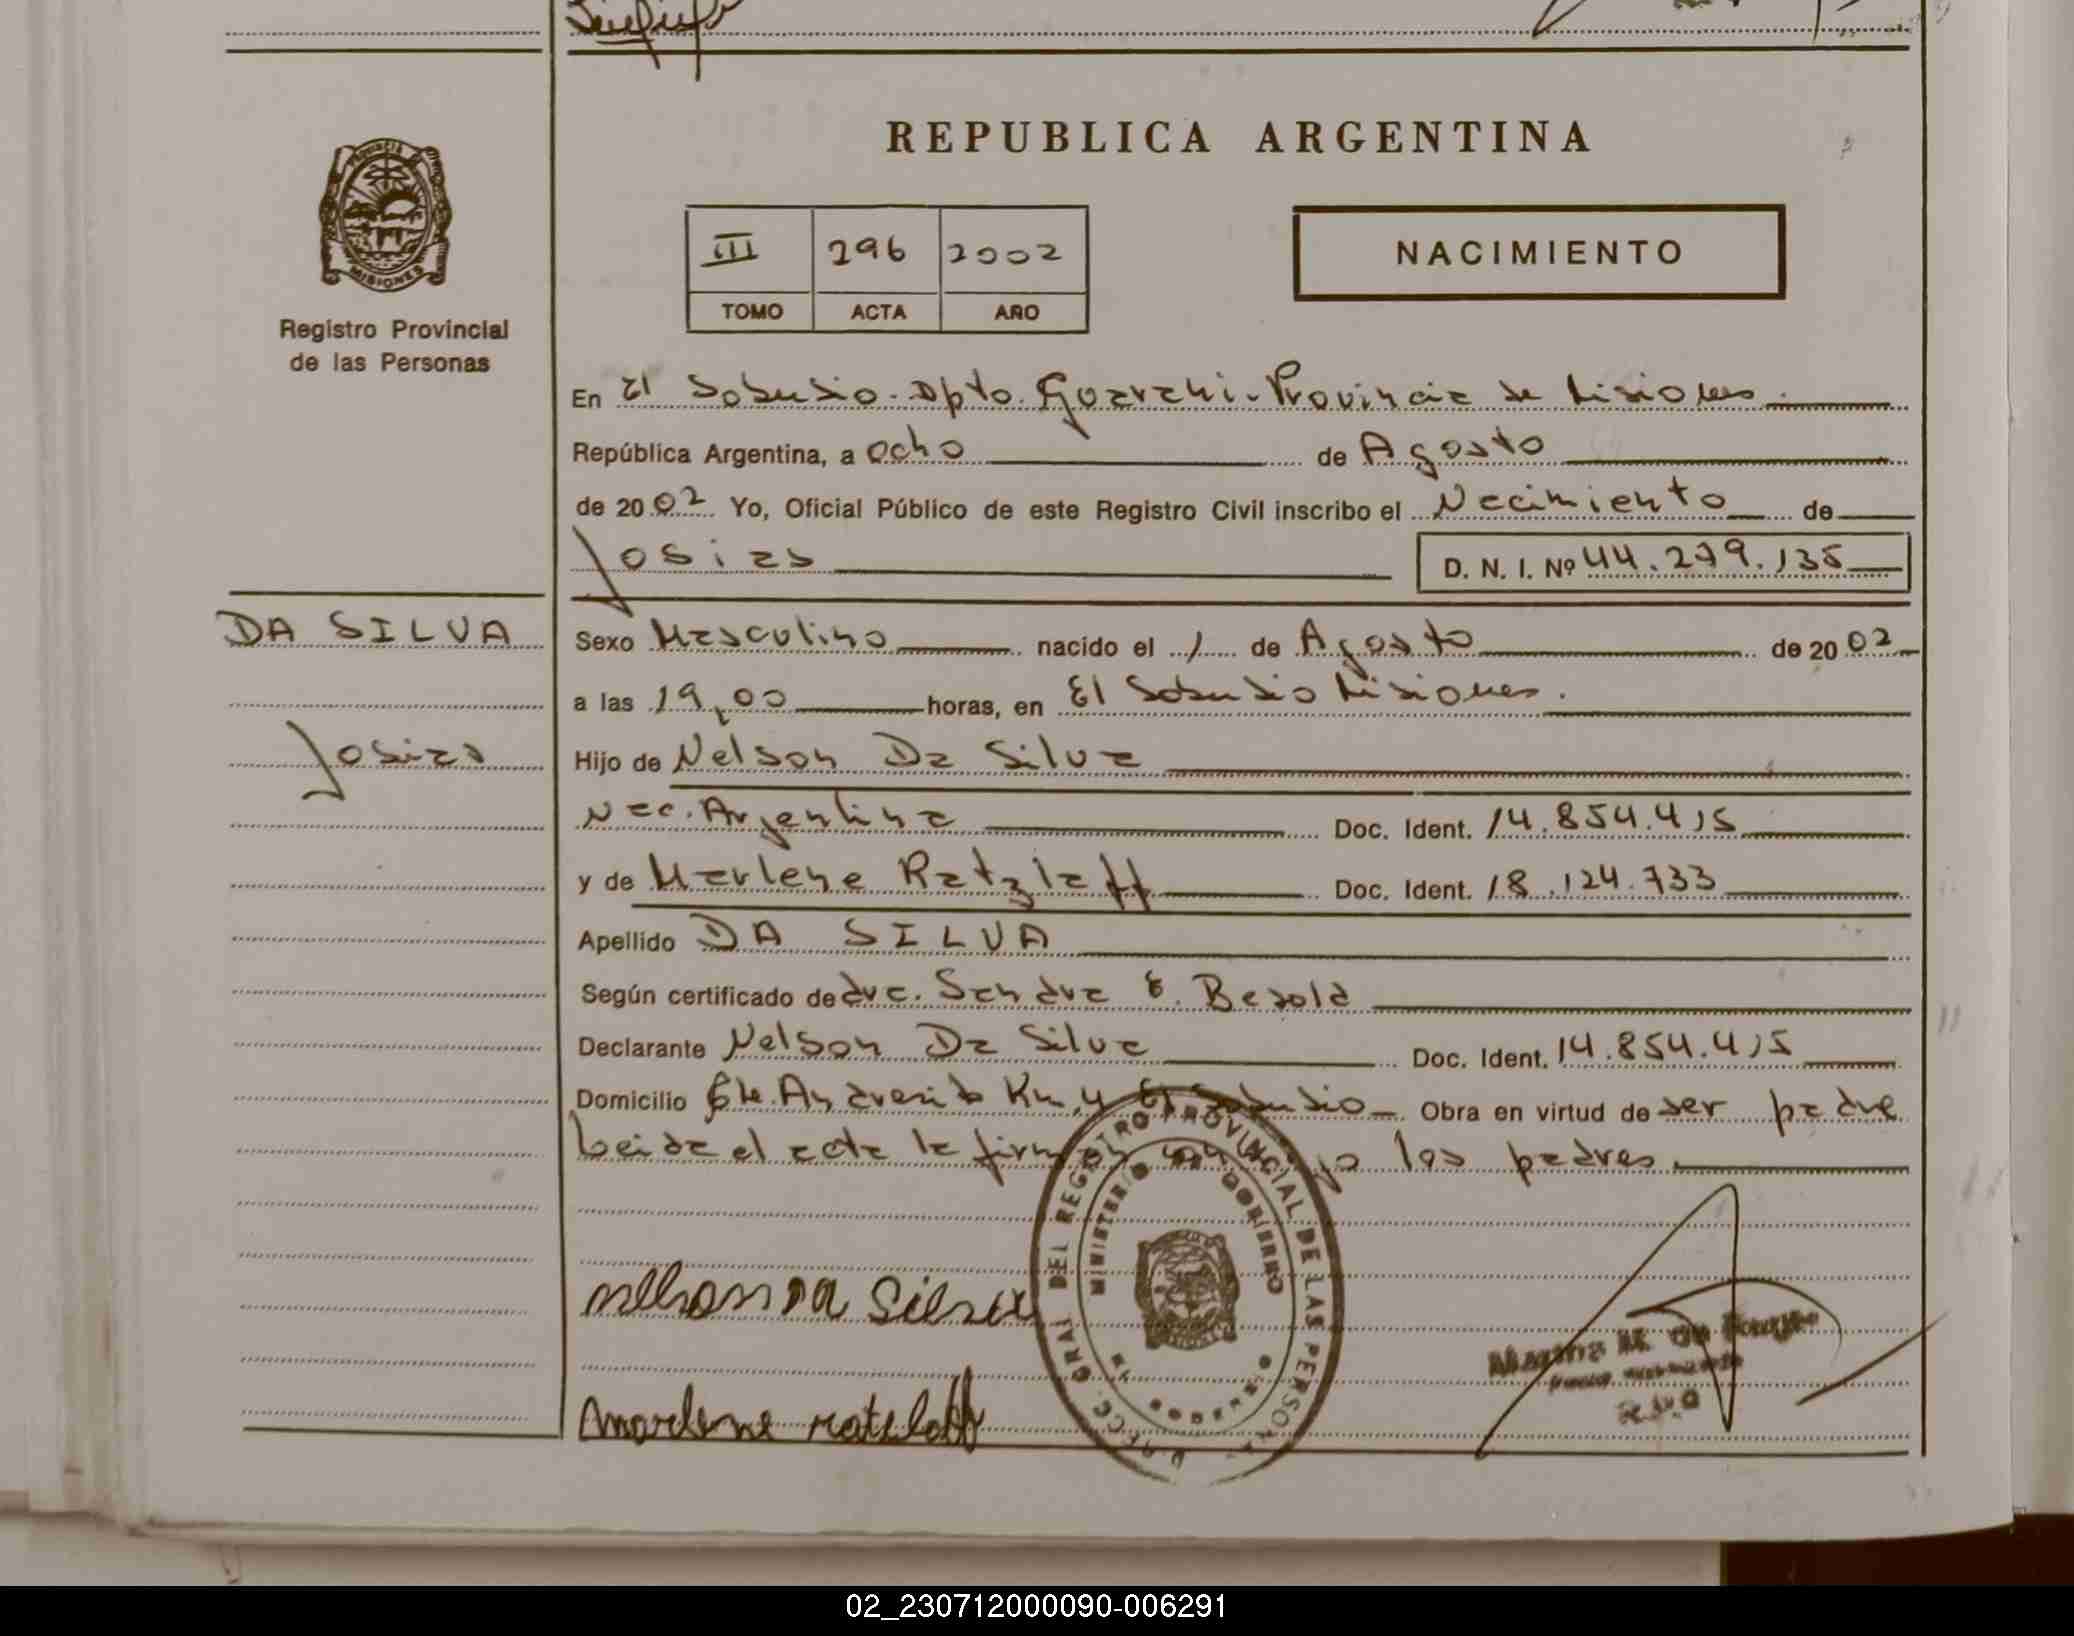 REPUBLICA ARGENTINA
PROVINCIA DE MISIONES
Registro Provincial
de las Personas
III 296 2002
TOMO ACTA AÑO
NACIMIENTO
En El Soberbio - Dpto. Guarani - Provincia de Misiones.
República Argentina, a ocho de Agosto
de 2002 Yo, Oficial Público de este Registro Civil inscribo el Nacimiento de
Josias D. N. I. Nº 44.279.135
DA SILVA
Josias
Sexo Masculino nacido el 1 de Agosto de 2002
a las 19,00 horas, en El Soberbio Misiones.
Hijo de Nelson Da Silva
Nac. Argentina Doc. Ident. 14.854.415
y de Marlene Ratzlaff Doc. Ident. 18.124.733
Apellido DA SILVA
Según certificado de dra. Sandra E. Besold
Declarante Nelson Da Silva Doc. Ident. 14.854.415
Domicilio Cte. Andresito Km. 4 El Soberbio Obra en virtud de ser padre
Leida el acta la firman los padres
nelson da silva
marlene ratzlaff
DIRECC. GRAL. DEL REGISTRO PROVINCIAL DE LAS PERSONAS
MINISTERIO DE GOBIERNO
02_230712000090-006291